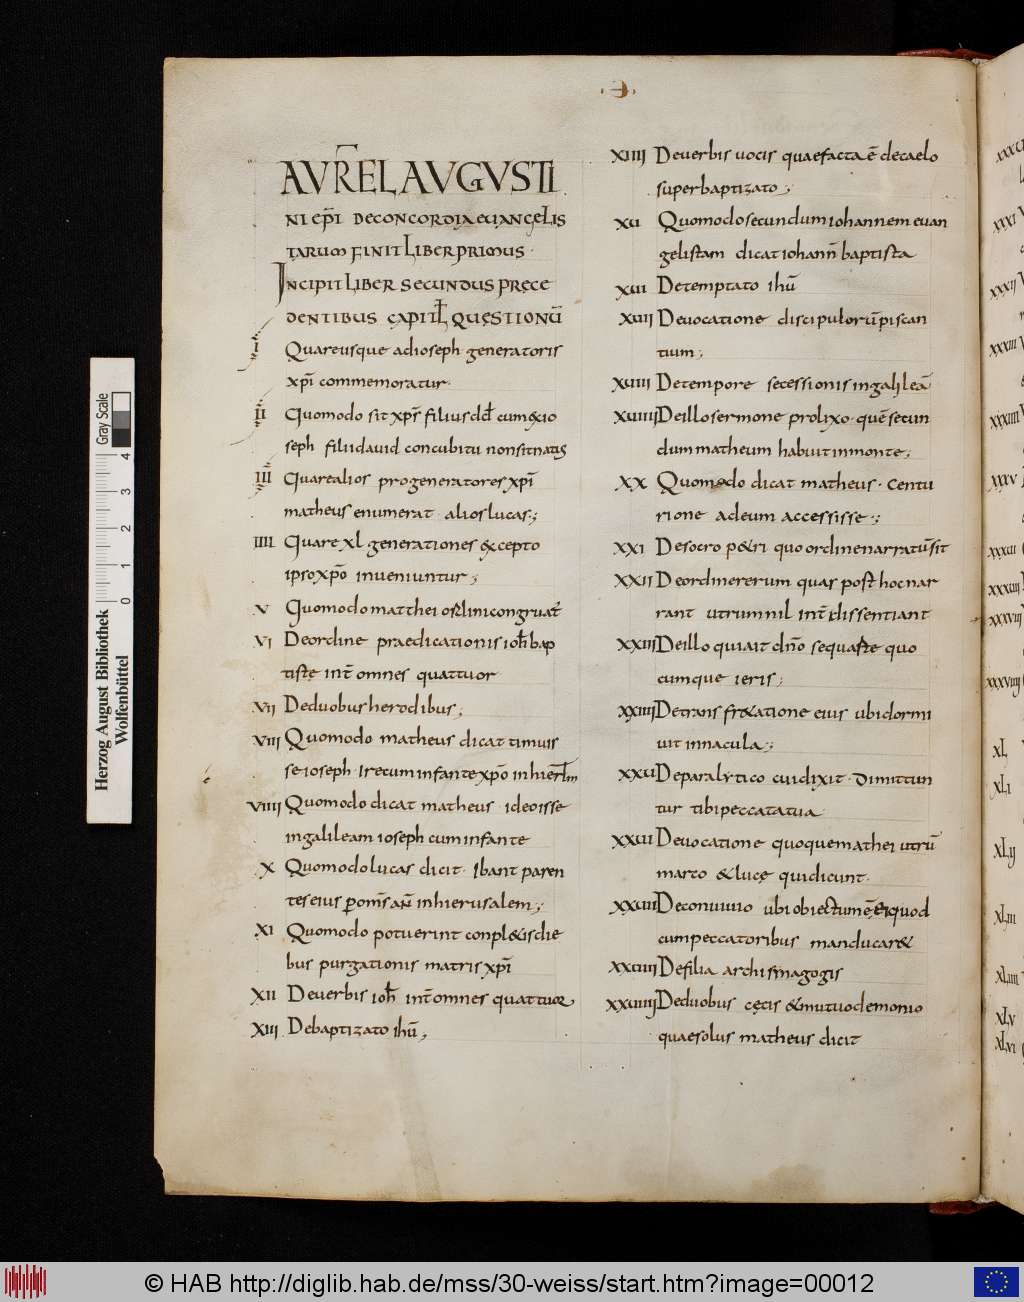 AVR̄EL AVGVSTI
NI EP̄I DECONCORDIA EUANGELIS
TARUM FINIT LIBER PRIMUS·
INCIPIT LIBER SECUNDUS PRECE
DENTIBUS CAPITL̄ QUĘSTIONŪ
I Quare usque adioseph generatoris
xp̄i commemoratur·
II Quomodo sit xp̄s filius dd̄ cum exio
seph filii dauid concubitu non sit natus
III Quare alios progeneratores xp̄i
matheus enumerat alios lucas;
IIII Quare xl generationes excepto
ipso xp̄o inueniuntur;
V Quomodo matthei ordini congruat
VI Deordine praedicationis ioh̄ bap
tistę int̄ omnes quattuor
VII Deduobus herodibus;
VIII Quomodo matheus dicat timuis
se ioseph· Ire cum infante xp̄o in hierl̄m
VIIII Quomodo dicat matheus· ideo isse
ingalileam ioseph cum infante
X Quomodo lucas dicit· Ibant paren
tes eius p om̄s an̄ in hierusalem;
XI Quomodo potuerint conpl&is die
bus purgationis matris xp̄i
XII Deuerbis ioh̄ int̄ omnes quattuor
XIII Debaptizato ih̄u;
XIIII Deuerbis uocis quae facta ē decaelo
super baptizato;
XU Quomodo secundum iohannem euan
gelistam dicat iohann̄ baptista
XUI Detemptato ih̄u
XUII Deuocatione discipulorū piscan
tium;
XUIII Detempore secessionis in galileā
XUIIII Deillo sermone prolixo· quē secun
dum matheum habuit inmonte;
XX Quomodo dicat matheus· Centu
rione adeum accessisse;
XXI Desocro p&ri quo ordine narratū sit
XXII Deordine rerum quas post hoc nar
rant utrum nil int̄ dissentiant
XXIII Deillo qui ait dn̄o sequaste quo
cumque ieris;
XXIIII Detransfr&atione eius ubi dormi
uit innacula;
XXU Deparalytico cui dixit· Dimittun
tur tibi peccata tua
XXUI Deuocatione quoque mathei utrū
marco &lucę qui dicunt·
XXUII Deconuiuio ubi obiectum ē Ei quod
cum peccatoribus manducar&
XXUIII Defilia archisynagogis
XXUIIII Deduobus cęcis &muto demonio
quae solus matheus dicit
XXXII
XXXIII
XXXIIII
XXXV
XL
XLI
XLIJ
XLIII
XLIIII
XLV
XLVI
Herzog August Bibliothek
Wolfenbüttel
0 1 2 3 4
Gray Scale
© HAB http://diglib.hab.de/mss/30-weiss/start.htm?image=00012